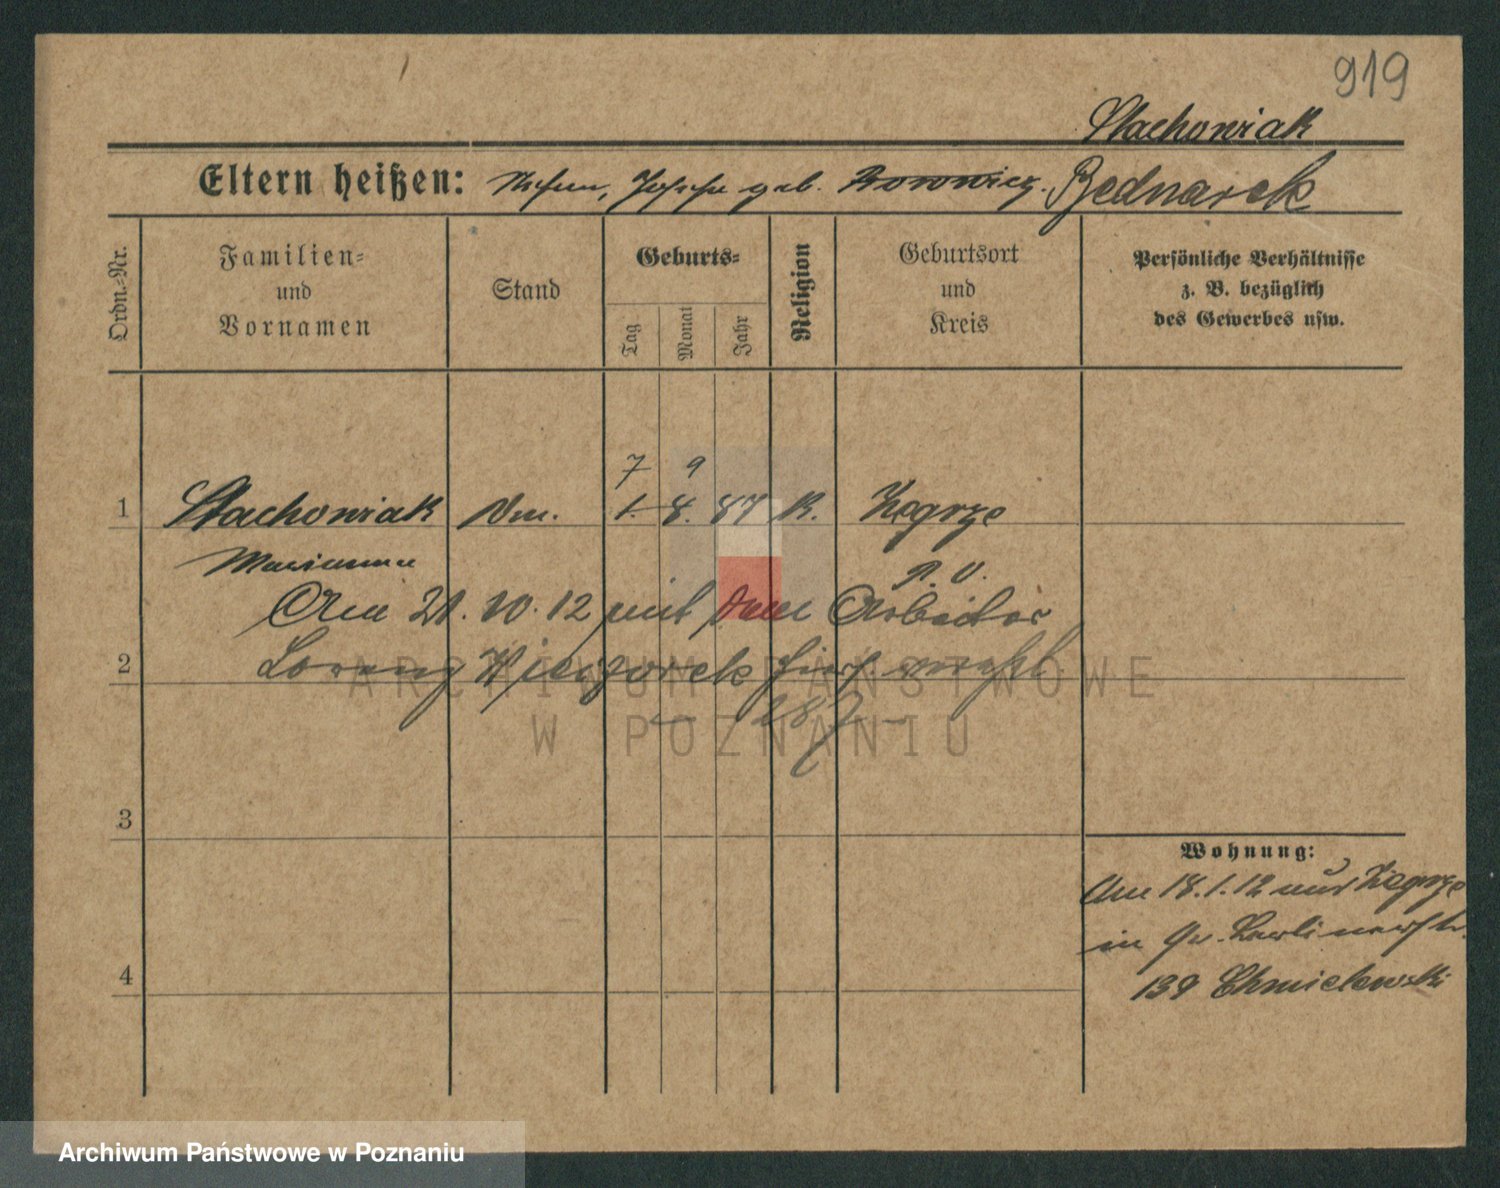 919
Stachowiak
Eltern heißen: geb. Borowicz. Bednarek
Ordn.-Nr.
Familien-
und
Vornamen
Stand
Geburts-
Tag
Monat
Jahr
Religion
Geburtsort
und
Kreis
Persönliche Verhältnisse
z. B. bezüglich
des Gewerbes usw.
7 9
1 Stachowiak 1. 8. 87 K. Zegrze
Marianna P. O.
Am 21. 10. 12 mit dem Arbeiter
2 Lorenz Wieczorek hier verehl.
- 287 -
3
Wohnung:
Am 18.1.12 aus Zegrze
in Gr. Berlinerstr.
4
139 Chmielewski
ARCHIWUM PAŃSTWOWE
W POZNANIU
Archiwum Państwowe w Poznaniu